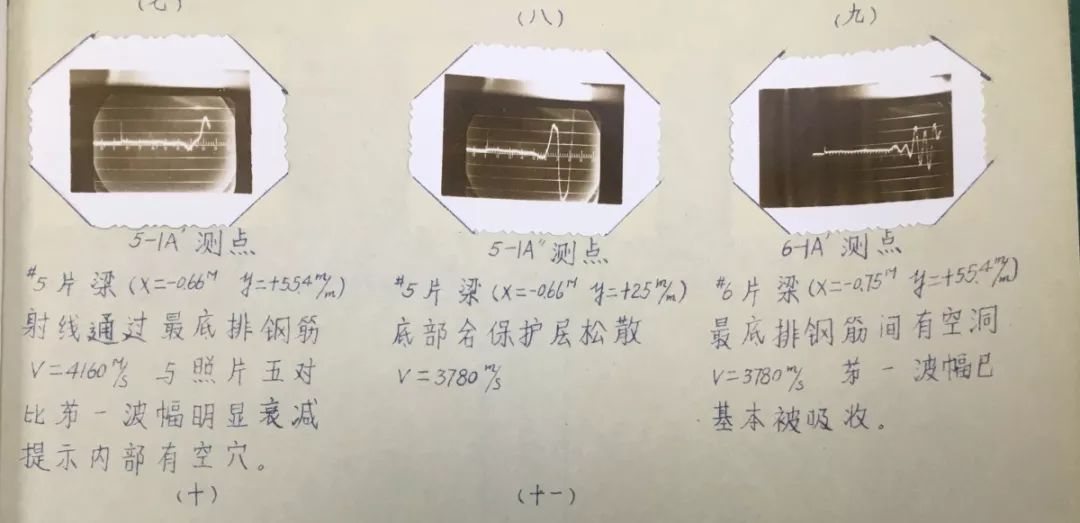 (七)
(八)
(九)
5-1A' 测点
#5片梁(X=-0.66M y=+55.4m/m)
射线通过最底排钢筋
V=4160M/S 与照片五对
比第一波幅明显衰减
提示内部有空穴。
5-1A" 测点
#5片梁(X=-0.66M y=+25m/m)
底部含保护层松散
V=3780M/S
6-1A' 测点
#6片梁(X=-0.75M y=+55.4m/m)
最底排钢筋间有空洞
V=3780M/S 第一波幅已
基本被吸收。
(十)
(十一)